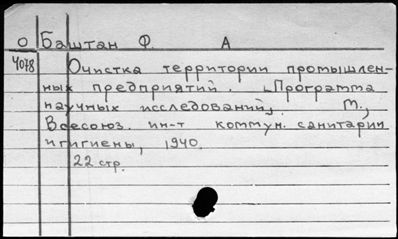 О Баштан Ф. А
4078 Очистка территории промышлен-
ных предприятий. [Программа
научных исследований]. М.,
Всесоюз. ин-т коммун. санитарии
и гигиены, 1940.
22 стр.